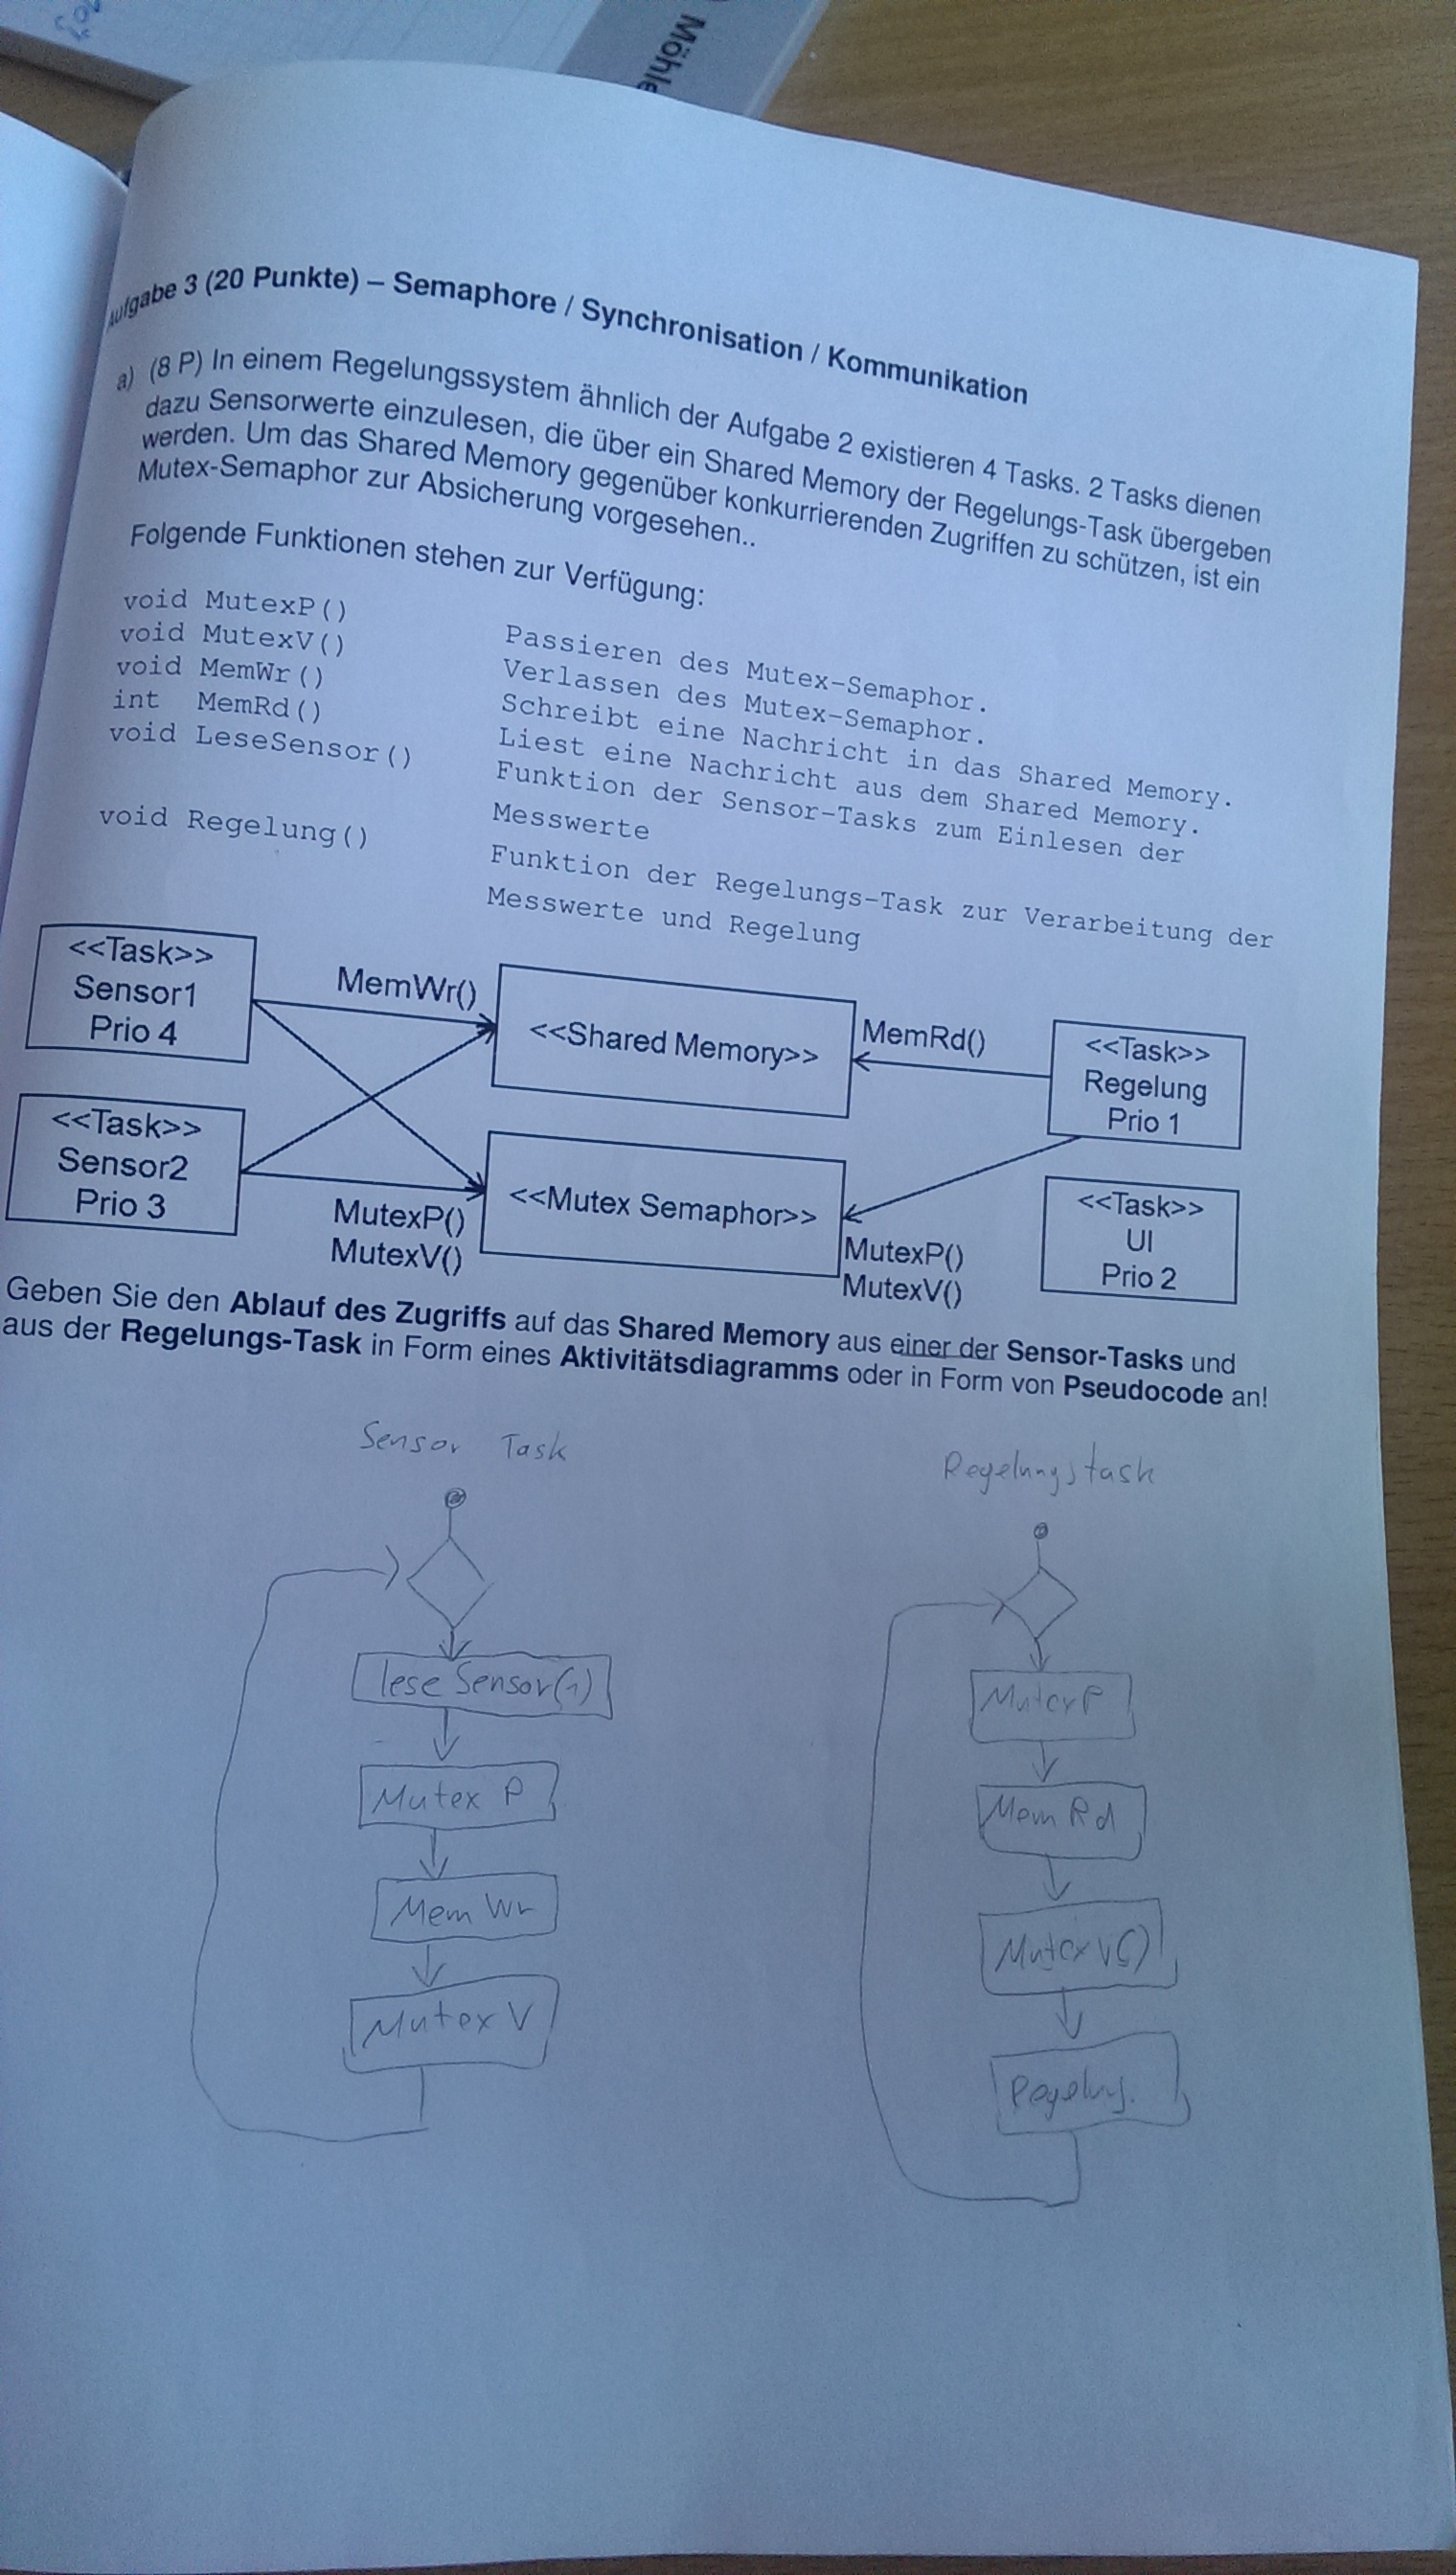 Möhle
Aufgabe 3 (20 Punkte) – Semaphore / Synchronisation / Kommunikation
a) (8 P) In einem Regelungssystem ähnlich der Aufgabe 2 existieren 4 Tasks. 2 Tasks dienen
dazu Sensorwerte einzulesen, die über ein Shared Memory der Regelungs-Task übergeben
werden. Um das Shared Memory gegenüber konkurrierenden Zugriffen zu schützen, ist ein
Mutex-Semaphor zur Absicherung vorgesehen..
Folgende Funktionen stehen zur Verfügung:
void MutexP() Passieren des Mutex-Semaphor.
void MutexV() Verlassen des Mutex-Semaphor.
void MemWr() Schreibt eine Nachricht in das Shared Memory.
int MemRd() Liest eine Nachricht aus dem Shared Memory.
void LeseSensor() Funktion der Sensor-Tasks zum Einlesen der
Messwerte
void Regelung() Funktion der Regelungs-Task zur Verarbeitung der
Messwerte und Regelung
<<Task>>
Sensor1
Prio 4
MemWr()
<<Shared Memory>>
MemRd()
<<Task>>
Regelung
Prio 1
<<Task>>
Sensor2
Prio 3
MutexP()
MutexV()
<<Mutex Semaphor>>
MutexP()
MutexV()
<<Task>>
UI
Prio 2
Geben Sie den Ablauf des Zugriffs auf das Shared Memory aus einer der Sensor-Tasks und
aus der Regelungs-Task in Form eines Aktivitätsdiagramms oder in Form von Pseudocode an!
Sensor Task
lese Sensor(1)
Mutex P
Mem Wr
Mutex V
Regelungstask
MutexP
Mem Rd
Mutex V()
Regelung.